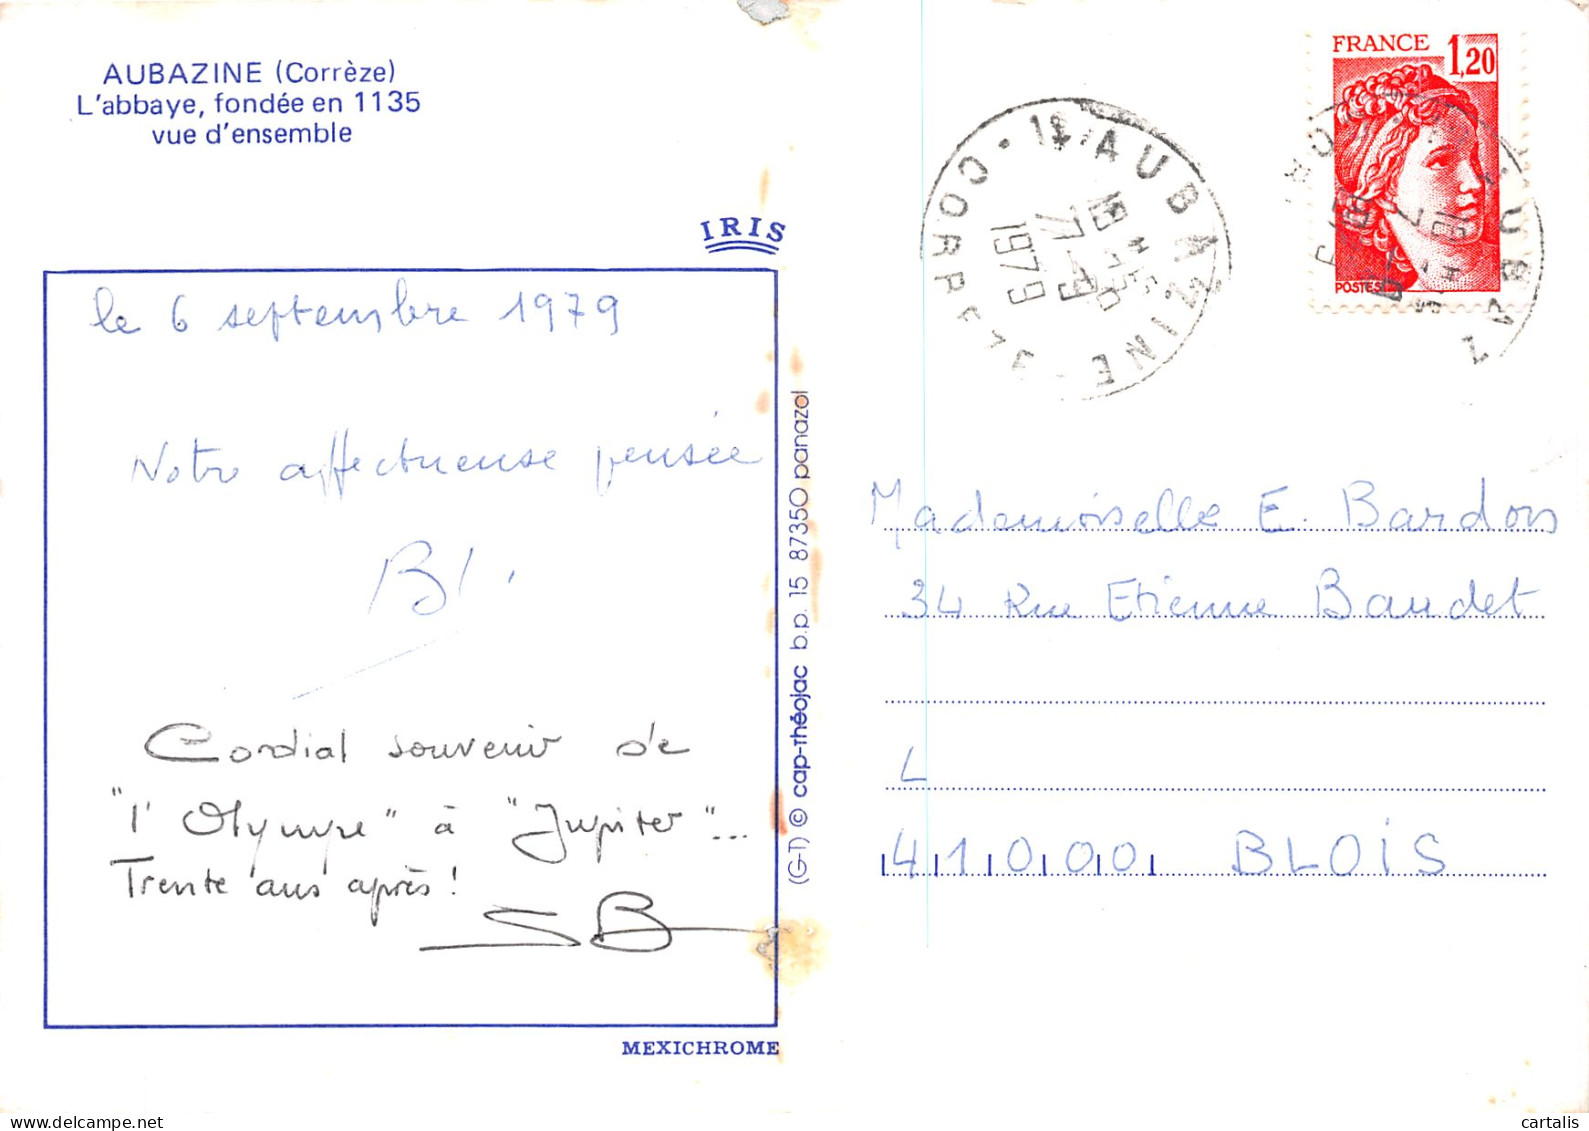 AUBAZINE (Corrèze)
L'abbaye, fondée en 1135
vue d'ensemble
IRIS
le 6 septembre 1979
Notre affectueuse pensée
Bl.
Cordial souvenir de
"l'Olympe" à "Jupiter"...
Trente ans après !
SB
MEXICHROME
(G-T) © cap-théojac b.p. 15 87350 panazol
FRANCE 1,20
POSTES
AUBAZINE
CORREZE
7-9
1979
Mademoiselle E. Bardois
34 Rue Etienne Baudet
L
41000 BLOIS
cartalis